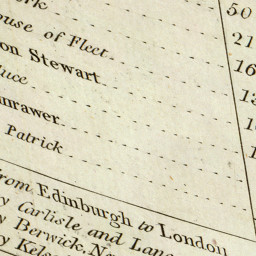 50
ouse of Fleet 21
on Stewart 16
uce 1
nrawer 1
Patrick 1
from Edinburgh to London
y Carlisle and Lan
y Berwick, N
y Kelso